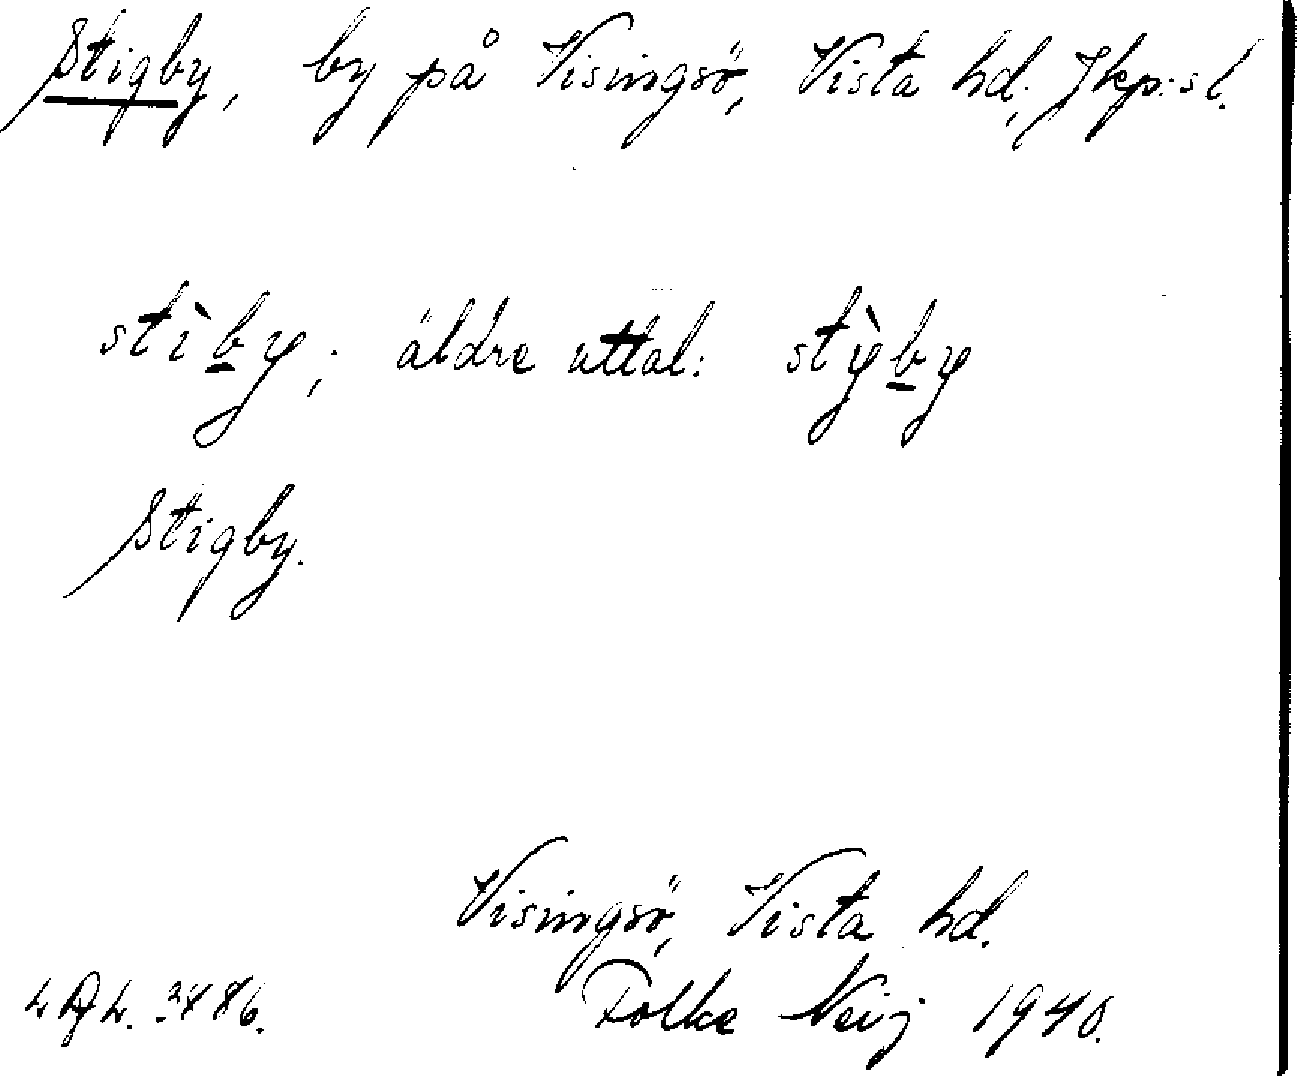 Stigby, by på Visingsö, Vista hd, Jkp:s l.
stìby; äldre uttal: stỳby
Stigby.
Visingsö, Vista hd.
Folke Neij 1940.